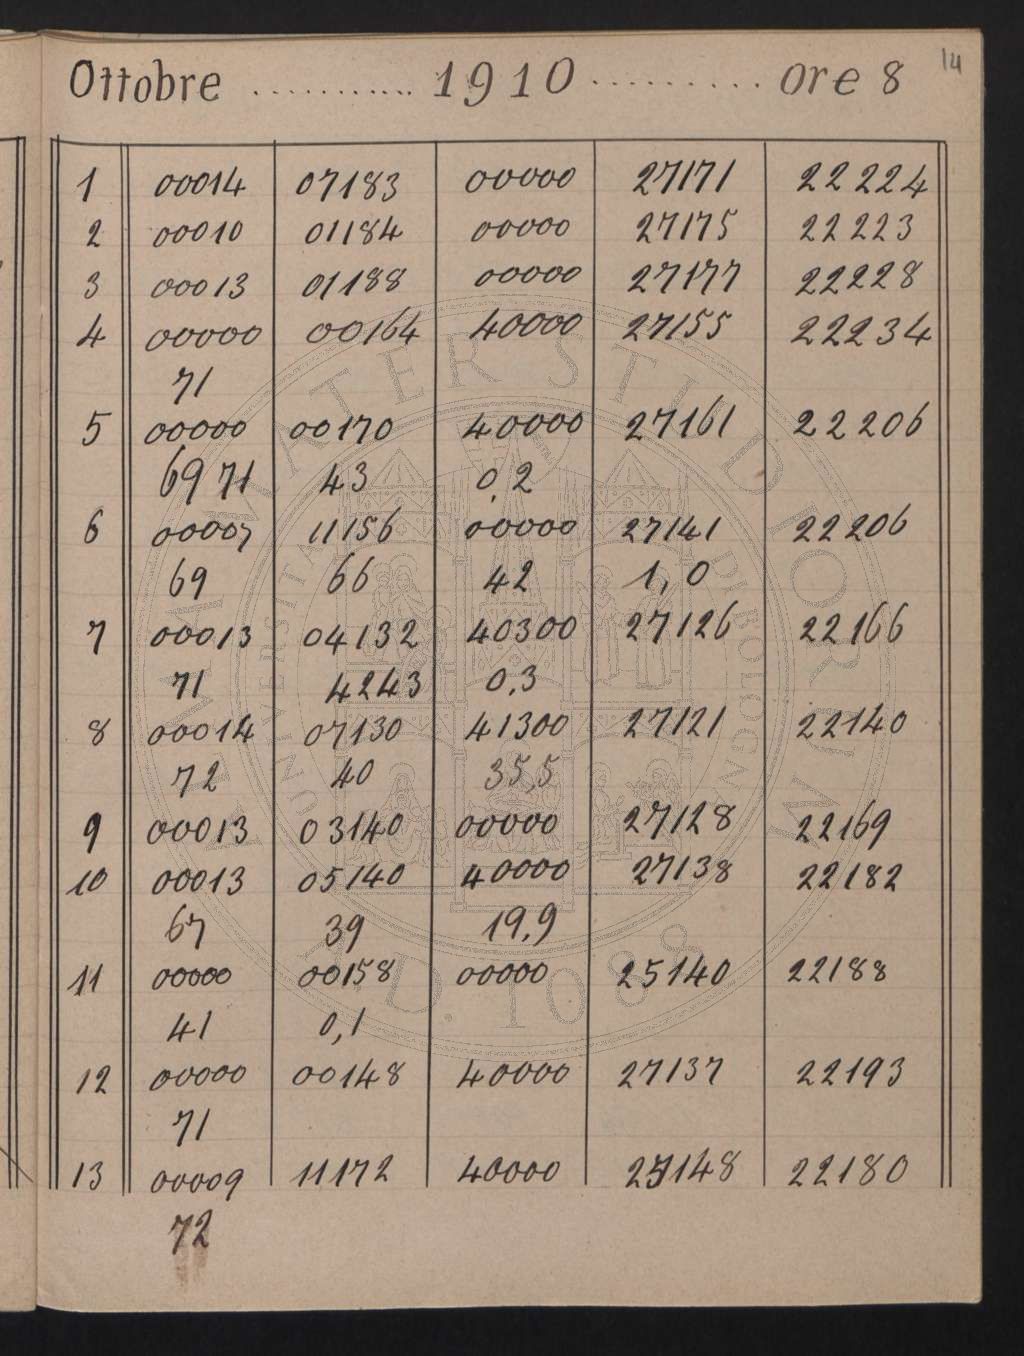 14
Ottobre ........... 1910 .......... ore 8
1 00014 07183 00000 27171 22224
2 00010 01184 00000 27175 22223
3 00013 01188 00000 27177 22228
4 00000 00164 40000 27155 22234
71
5 00000 00170 40000 27161 22206
69 71 43 0,2
6 00007 11156 00000 27141 22206
69 66 42 1,0
7 00013 04132 40300 27126 22166
71 4243 0,3
8 00014 07130 41300 27121 22140
72 40 35,5
9 00013 03140 00000 27128 22169
10 00013 05140 40000 27138 22182
67 39 19,9
11 00000 00158 00000 25140 22188
41 0,1
12 00000 00148 40000 27137 22193
71
13 00009 11172 40000 27148 22180
72
ALMA MATER STUDIORUM
UNIVERSITÀ DI BOLOGNA
A.D. 1088